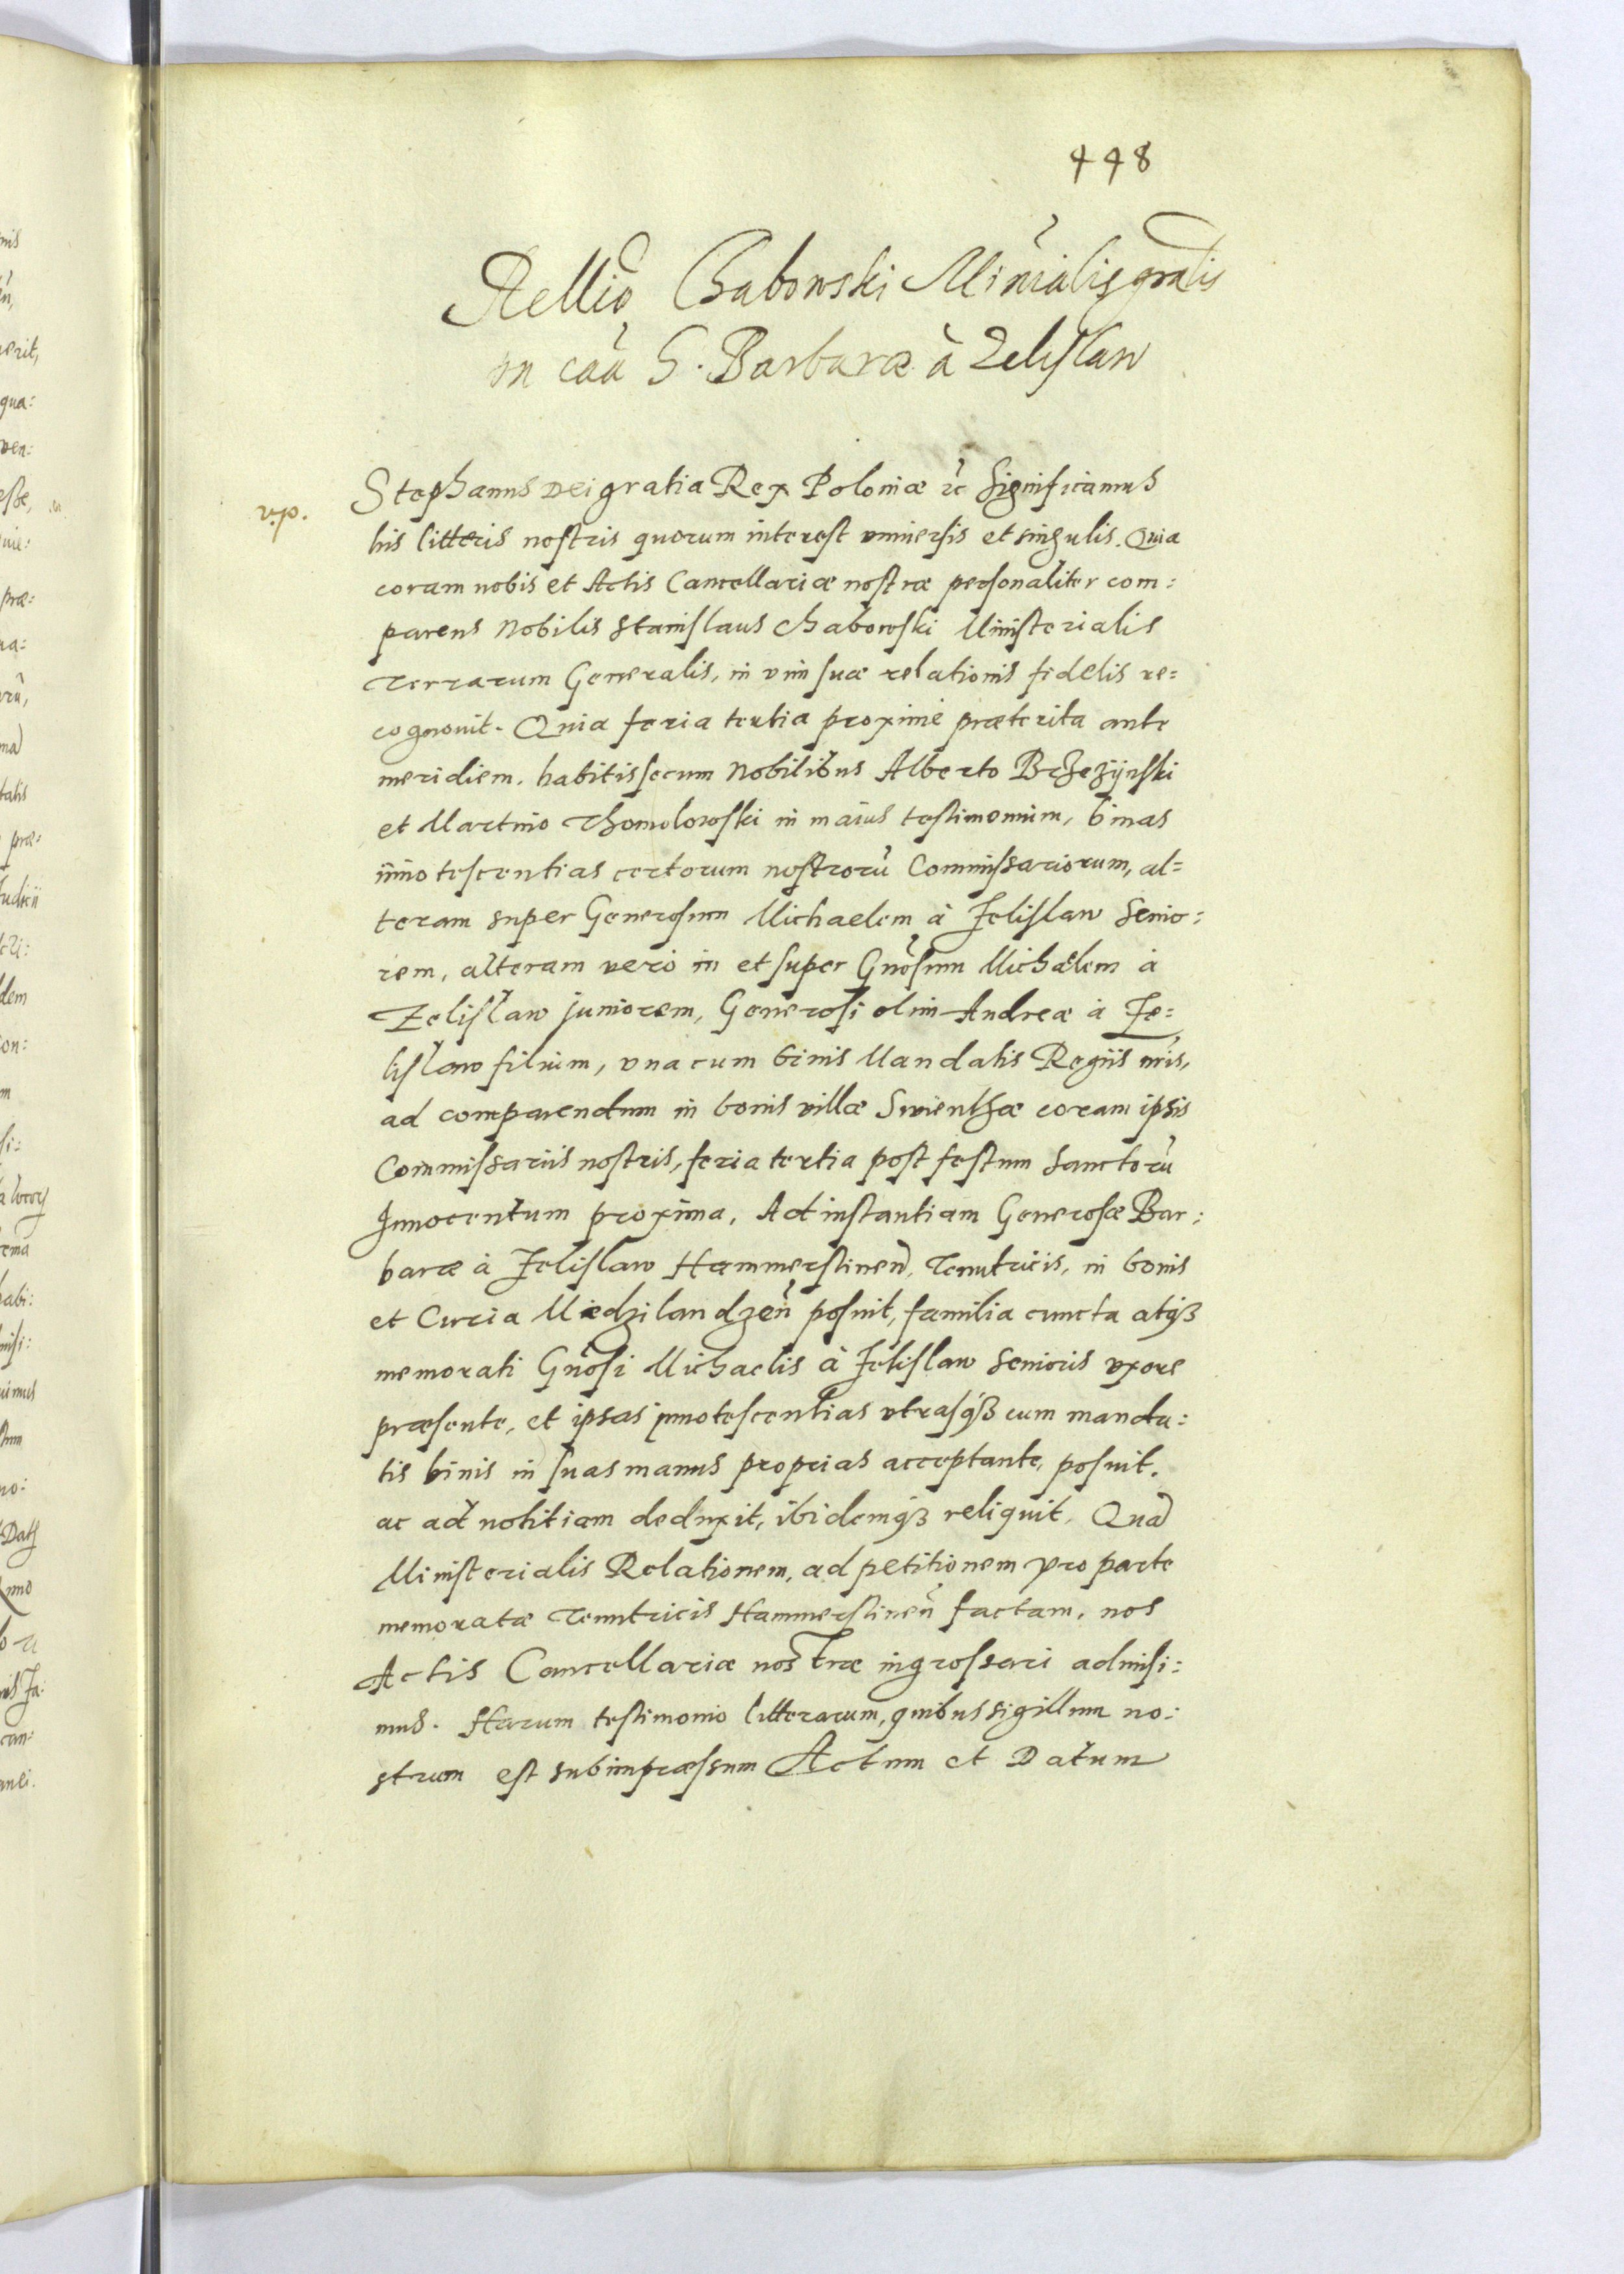 448
Rellio Chabowski Minialis gnalis
in caa G. Barbaræ à Zelislaw
v.p.
Stephanus Dei gratia Rex Poloniæ etc Significamus
his litteris nostris quorum interest vniuersis et singulis. Quia
coram nobis et Actis Cancellariæ nostræ personaliter com:
parens Nobilis Stanislaus Chabowski Ministerialis
Terrarum Generalis, in vim suæ relationis fidelis re=
cognouit. Quia feria tertia proximè præterita ante
meridiem, habitis secum Nobilibus Alberto Brzezijnski
et Martino Thomolowski in maius testimonium, binas
innotescentias certorum nostrorũ Commissariorum, al=
teram super Generosum Michaelem à Zelislaw Senio:
rem, alteram verò in et super Gnosum Michaelem à
Zelislaw juniorem, Generosi olim Andreæ à Ze=
lislaw filium, vna cum binis Mandatis Regiis nris,
ad comparendum in bonis villæ Swienthæ coram ipsis
Commissariis nostris, feria tertia post festum Sanctorũ
Innocentum proxima, Ad instantiam Generosæ Bar:
baræ à Zelislaw Hammerstinen, Tenutricis, in bonis
et Curia Miedzilandzen posuit, familia cuncta atqȝ
memorati Gnosi Michaelis à Zelislaw Senioris vxore
præsente, et ipsas innotescentias vtrasqȝ cum manda:
tis binis in suas manus proprias acceptante, posuit.
ac ad notitiam deduxit, ibidemqȝ reliquit. Quã
Ministerialis Relationem, ad petitionem pro parte
memoratæ Tenutricis Hammerstinen factam, nos
Actis Cancellariæ nostræ ingrossari admisi:
mus. Harum testimonio litterarum, quibus sigillum no:
strum est subimpræssum Actum et Datum